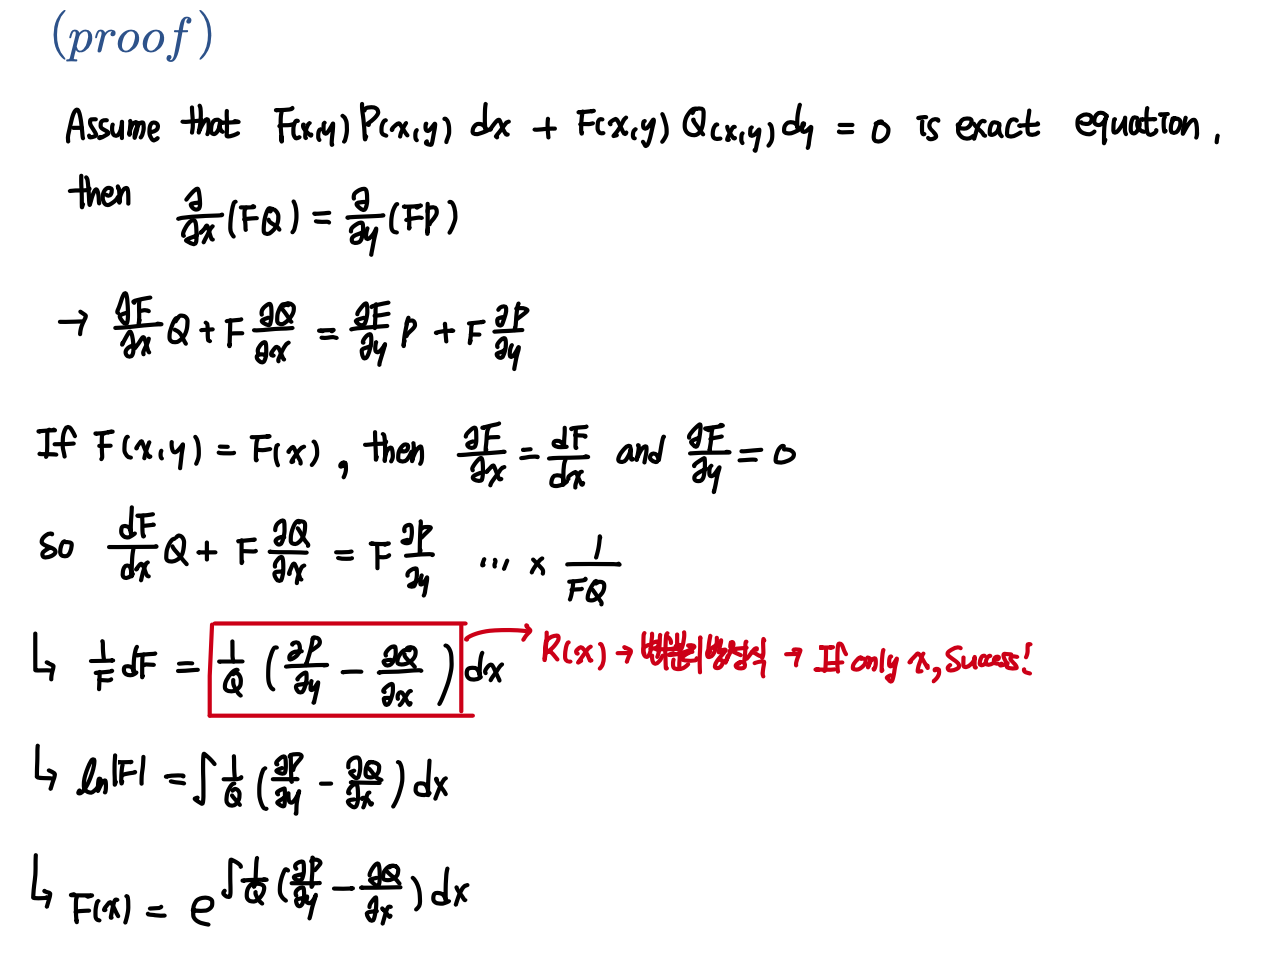 (proof)
Assume that F(x,y) P(x,y) dx + F(x,y) Q(x,y) dy = 0 is exact equation,
then ∂/∂x (FQ) = ∂/∂y (FP)
→ ∂F/∂x Q + F ∂Q/∂x = ∂F/∂y P + F ∂P/∂y
If F(x,y) = F(x), then ∂F/∂x = dF/dx and ∂F/∂y = 0
So dF/dx Q + F ∂Q/∂x = F ∂P/∂y ... × 1/FQ
↳ 1/F dF = 1/Q (∂P/∂y − ∂Q/∂x) dx → R(x) → → If only x, Success!
↳ ln|F| = ∫ 1/Q (∂P/∂y − ∂Q/∂x) dx
↳ F(x) = e^∫ 1/Q (∂P/∂y − ∂Q/∂x) dx